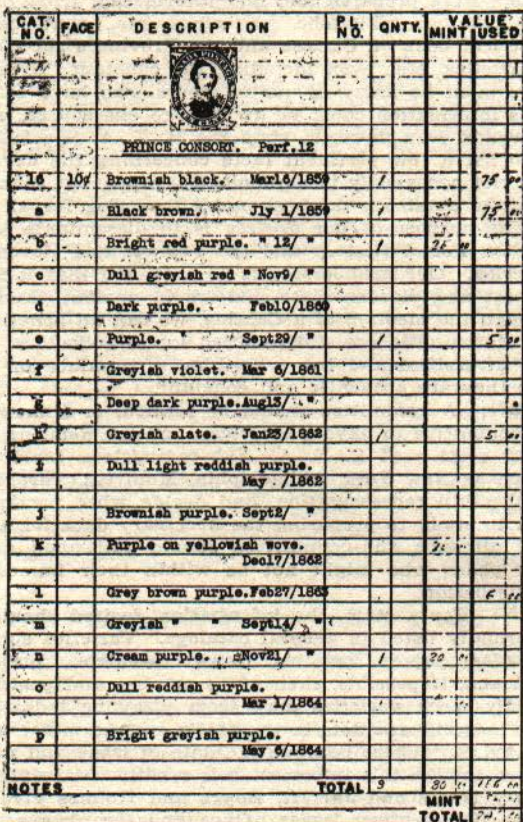 CAT. NO. FACE DESCRIPTION PL. NO. QNTY. VALUE MINT USED
PRINCE CONSORT. Perf.12
16 10¢ Brownish black. Mar16/1859 1 75 00
a Black brown. Jly 1/1859 1 75 00
b Bright red purple. " 12/ " 1
c Dull greyish red " Nov9/ "
d Dark purple. Feb10/1860
e Purple. " Sept29/ " 1 5 00
f Greyish violet. Mar 6/1861
g Deep dark purple.Aug13/ "
h Greyish slate. Jan23/1862 1 5 00
i Dull light reddish purple.
May /1862
j Brownish purple. Sept2/ "
k Purple on yellowish wove.
Dec17/1862
l Grey brown purple.Feb27/1863 6
m Greyish " " Sept14/ "
n Cream purple. Nov21/ " 1 20
o Dull reddish purple.
Mar 1/1864
p Bright greyish purple.
May 6/1864
NOTES TOTAL 9 80
MINT
TOTAL